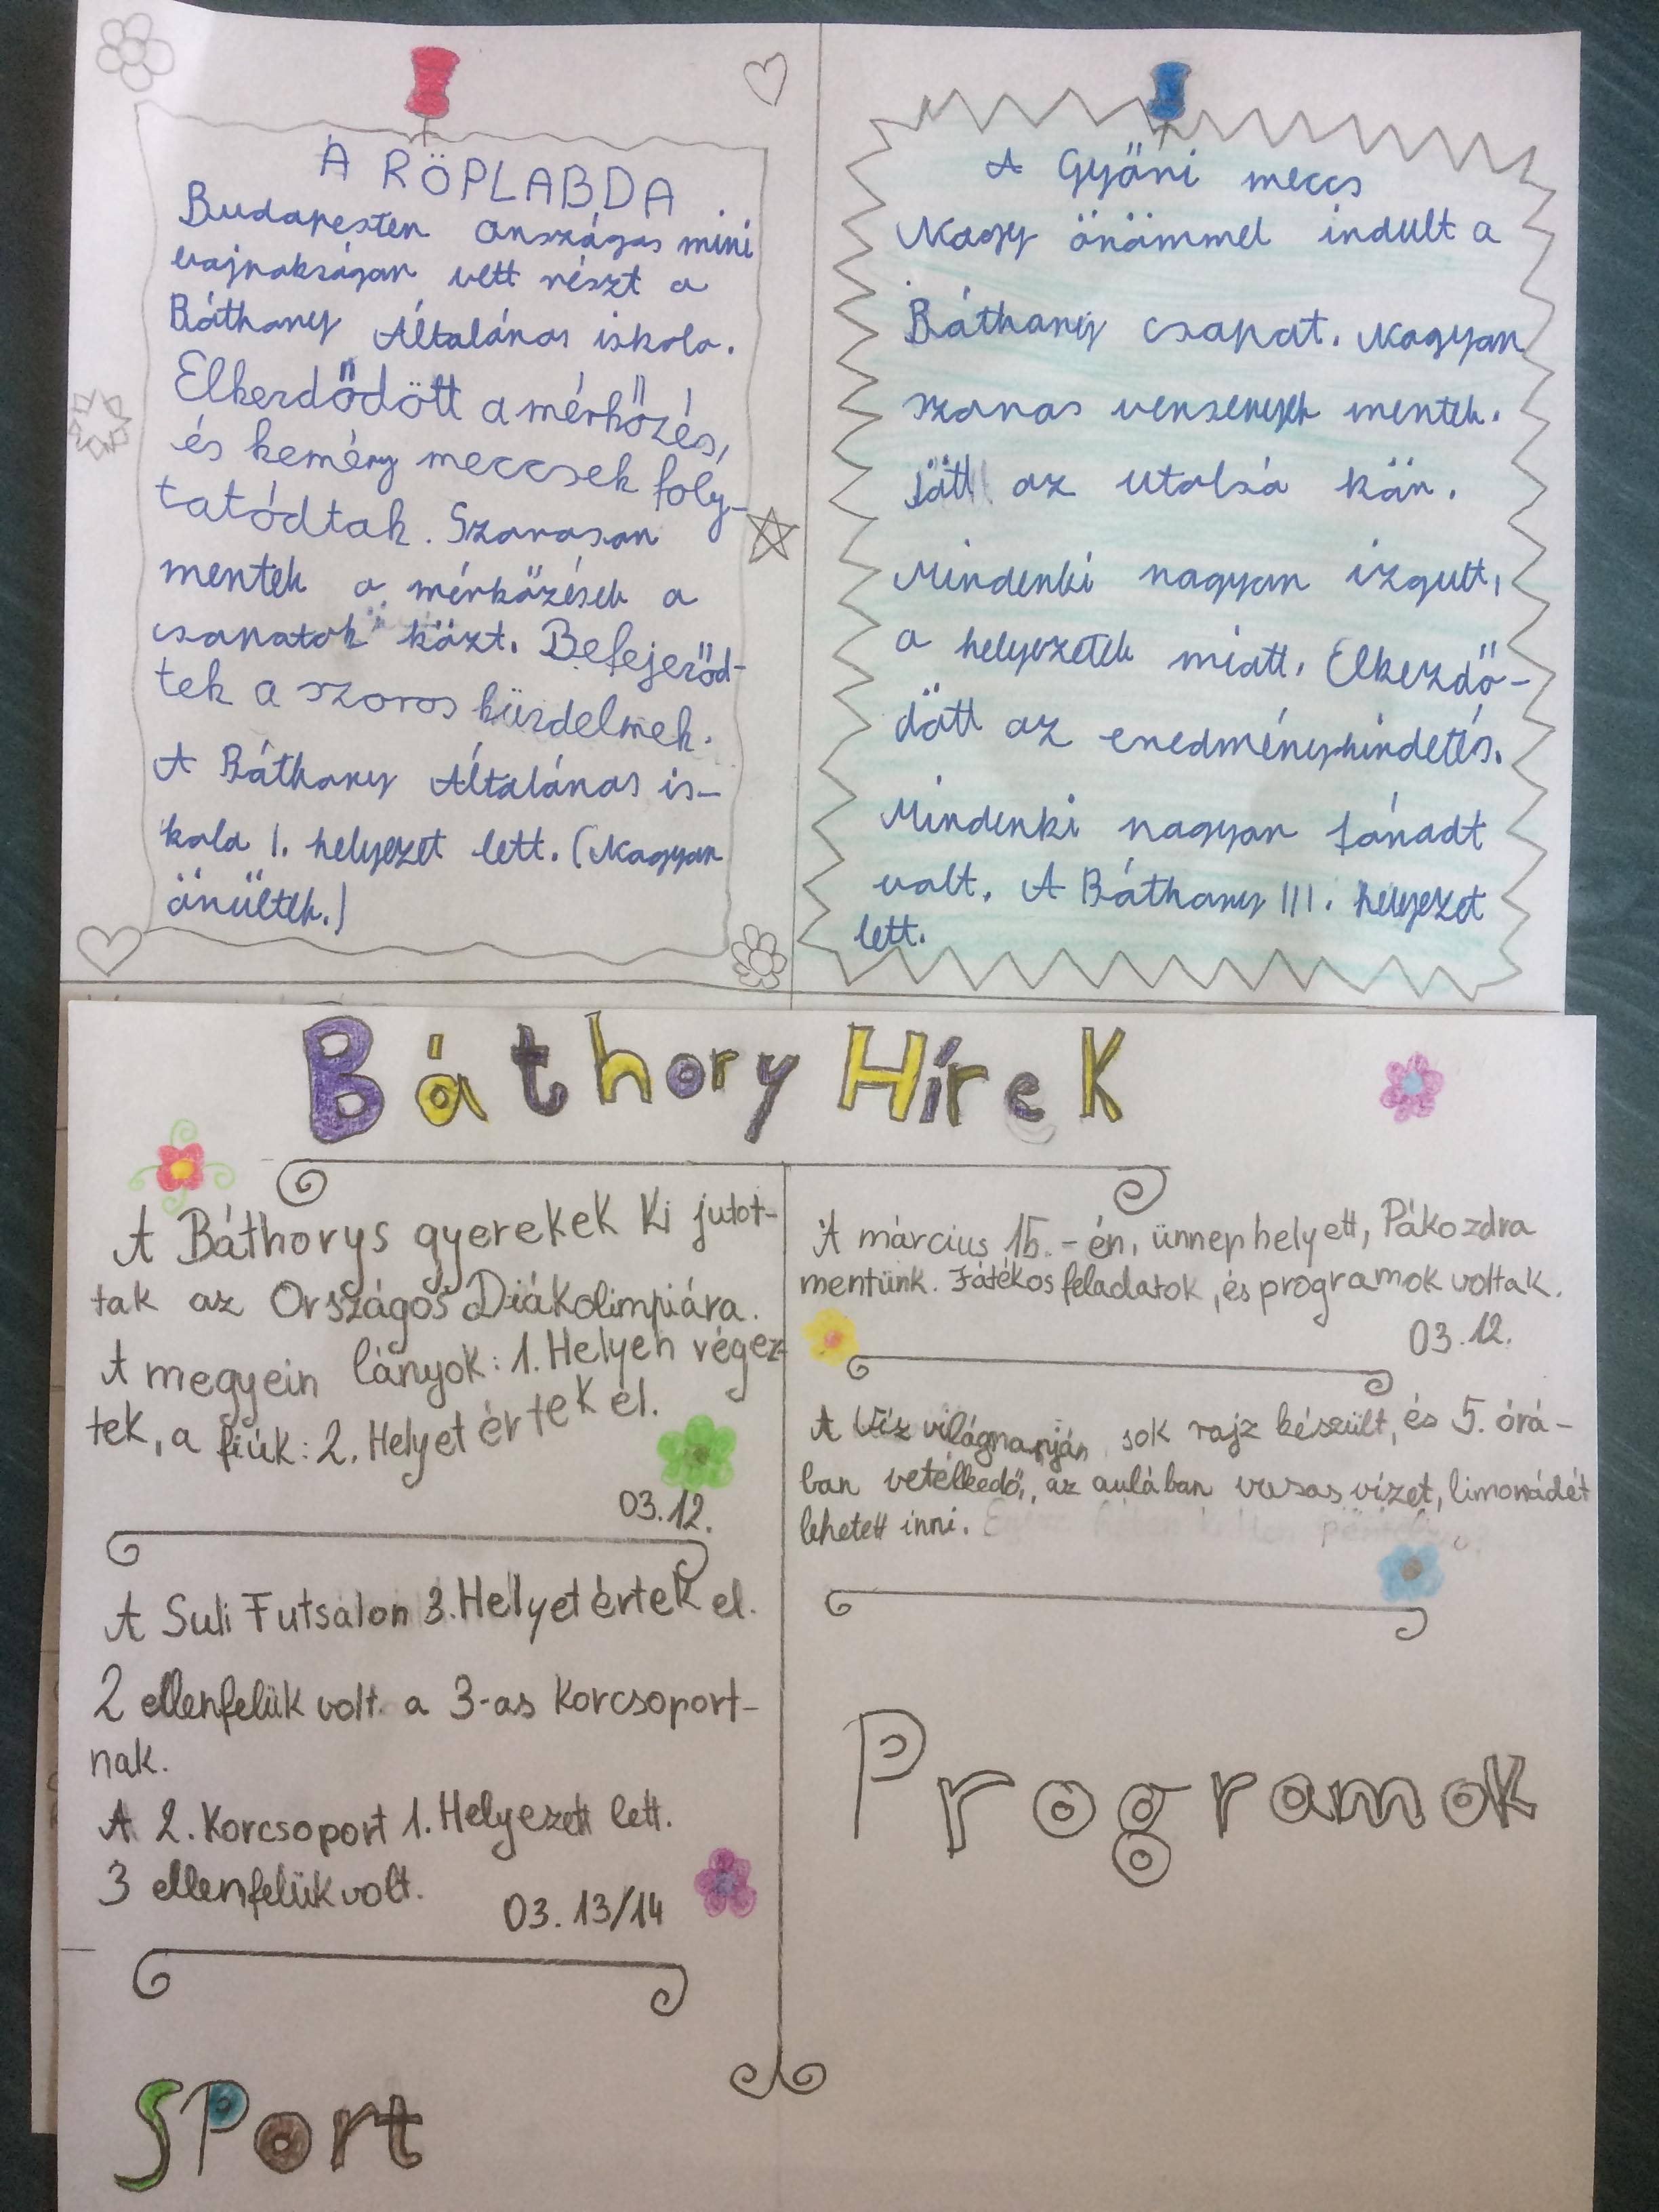 A RÖPLABDA
Budapesten országos mini
bajnokságon vett részt a
Báthory Általános iskola.
Elkezdődött a mérkőzés,
és kemény meccsek foly-
tatódtak. Szorosan
mentek a mérkőzések a
csapatok közt. Befejeződ-
tek a szoros küzdelmek.
A Báthory Általános is-
kola 1. helyezet lett. (Nagyon
örültek.)
A Győri meccs
Nagy örömmel indult a
Báthory csapat. Nagyon
szoros versenyek mentek.
Jött az utolsó kör.
Mindenki nagyon izgult,
a helyezetek miatt. Elkezdő-
dött az eredményhirdetés.
Mindenki nagyon fáradt
volt. A Báthory III. helyezet
lett.
Báthory Hírek
A Báthorys gyerekek ki jutot-
tak az Országos Diákolimpiára.
A megyein lányok: 1. Helyen végez-
tek, a fiúk: 2. Helyet értek el.
03.12.
A Suli Futsalon 3. Helyet értek el.
2 ellenfelük volt a 3-as Korcsoport-
nak.
A 2. Korcsoport 1. Helyezett lett.
3 ellenfelük volt.
03. 13/14
Sport
A március 15.-én, ünnep helyett, Pákozdra
mentünk. Játékos feladatok, és programok voltak.
03.12.
A Víz világnapján sok rajz készült, és 5. órá-
ban vetélkedő, az aulában vasas vizet, limonádét
lehetett inni.
Programok